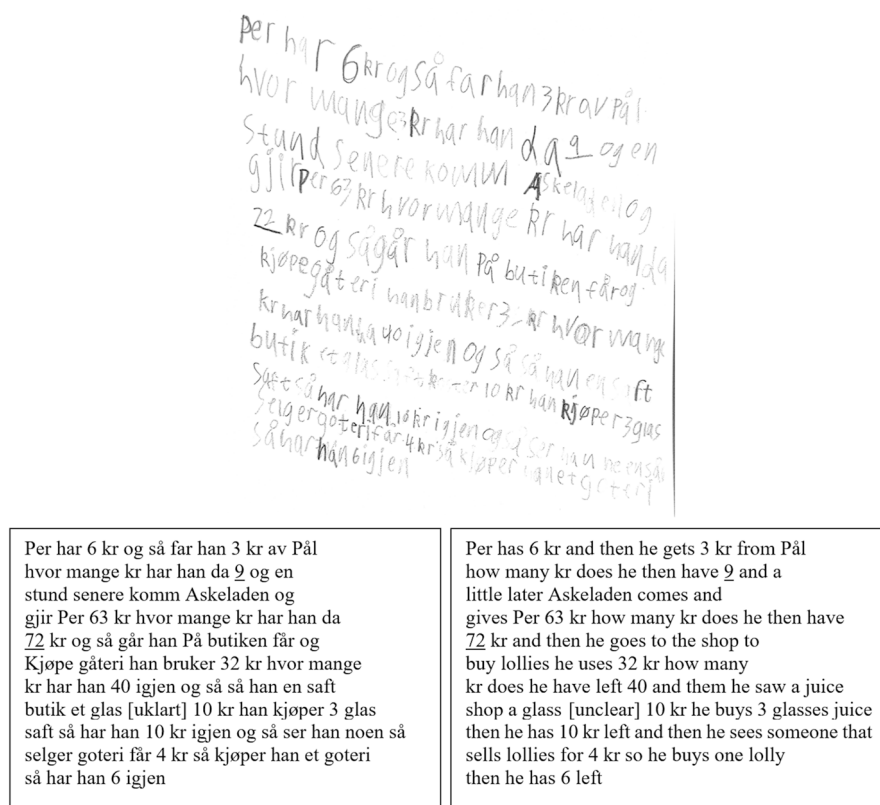 Per har 6 kr og så far han 3 kr av Pål
hvor mange kr har han da 9 og en
Stund senere komm Askeladen og
gjir Per 63 kr hvor mange kr har han da
72 kr og så går han På butiken får og
kjøpe gåteri han bruker 32 kr hvor mange
kr har han 40 igjen og så så han en saft
butik et glas 10 kr han kjøper 3 glas
Saft så har han 10 kr igjen og så ser han så
selger goteri får 4 kr så kjøper han et goteri
så har han 6 igjen
Per har 6 kr og så far han 3 kr av Pål
hvor mange kr har han da 9 og en
stund senere komm Askeladen og
gjir Per 63 kr hvor mange kr har han da
72 kr og så går han På butiken får og
Kjøpe gåteri han bruker 32 kr hvor mange
kr har han 40 igjen og så så han en saft
butik et glas [uklart] 10 kr han kjøper 3 glas
saft så har han 10 kr igjen og så ser han noen så
selger goteri får 4 kr så kjøper han et goteri
så har han 6 igjen
Per has 6 kr and then he gets 3 kr from Pål
how many kr does he then have 9 and a
little later Askeladen comes and
gives Per 63 kr how many kr does he then have
72 kr and then he goes to the shop to
buy lollies he uses 32 kr how many
kr does he have left 40 and them he saw a juice
shop a glass [unclear] 10 kr he buys 3 glasses juice
then he has 10 kr left and then he sees someone that
sells lollies for 4 kr so he buys one lolly
then he has 6 left